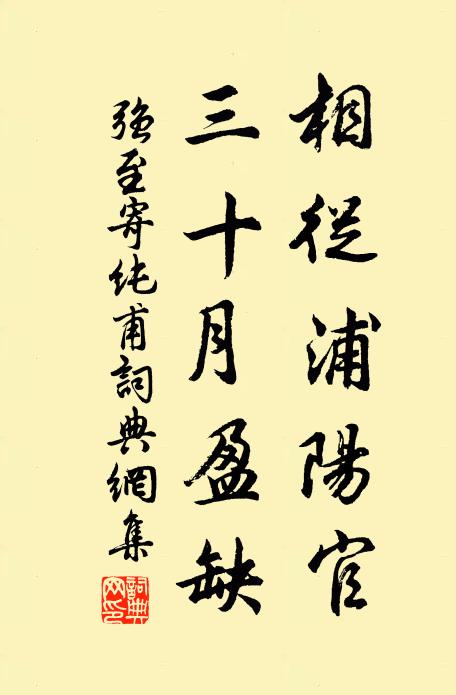 相從浦陽官
三十月盈缺
強至寄純甫詞典網集
詞典网印